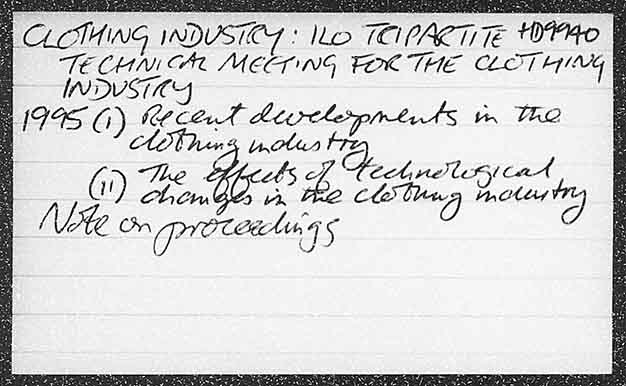 CLOTHING INDUSTRY: ILO TRIPARTITE HD9940
TECHNICAL MEETING FOR THE CLOTHING
INDUSTRY
1995 (i) Recent developments in the
clothing industry
(ii) The effects of technological
changes in the clothing industry
Note on proceedings